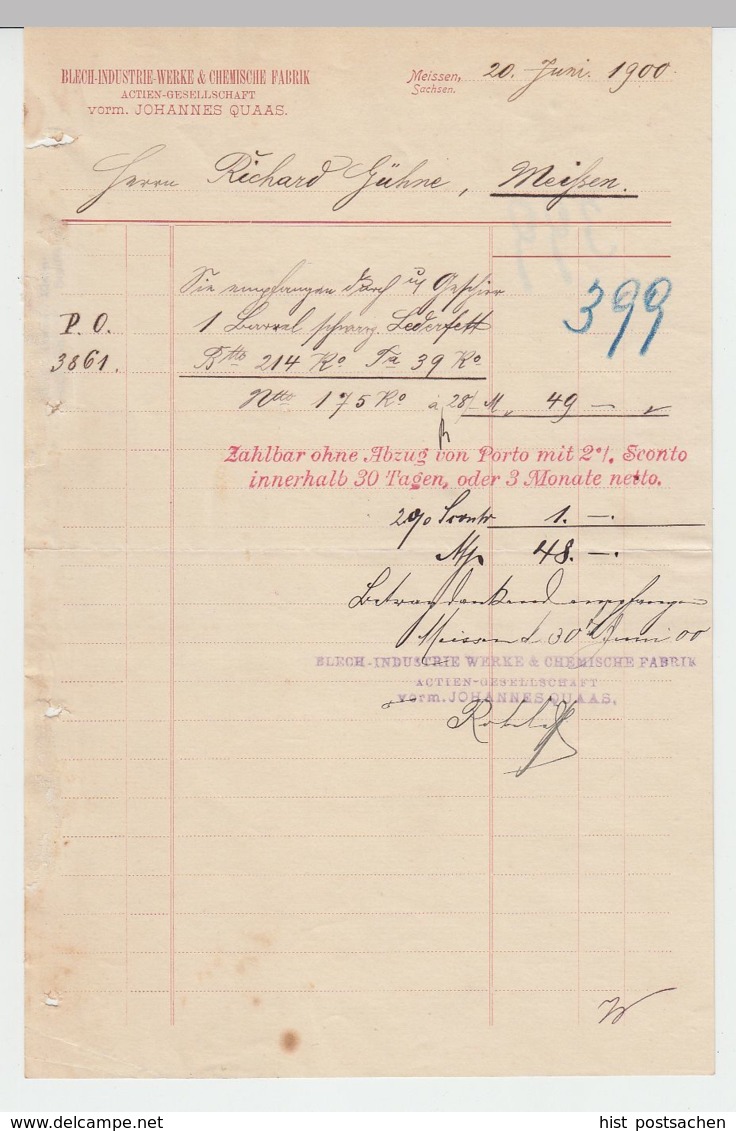 BLECH-INDUSTRIE-WERKE & CHEMISCHE FABRIK
ACTIEN-GESELLSCHAFT
vorm. JOHANNES QUAAS.
Meissen, 20. Juni. 1900.
Sachsen.
Herrn Richard Gühne, Meißen.
Sie empfangen durch Geschirr
399
P. O. 1 Barrel schwarz. Lederfett
3861. Btto 214 Ko Ta 39 Ko
Ntto 175 Ko à 28/ M 49 —
Zahlbar ohne Abzug von Porto mit 2% Sconto
innerhalb 30 Tagen, oder 3 Monate netto.
2% Sconto 1. —.
48. —.
Betrag dankend empfangen
Meissen d. 30 Juni 00
BLECH-INDUSTRIE WERKE & CHEMISCHE FABRIK
ACTIEN-GESELLSCHAFT
vorm. JOHANNES QUAAS.
W
hist postsachen